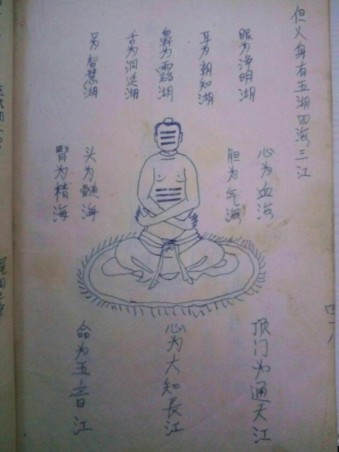 但人身有五湖四海三江
眼为净明湖
耳为朝知湖
鼻为露湖
舌为洞送湖
另为智慧湖
心为血海
胆为气海
头为髓海
肾为精海
顶门为通天江
心为大知長江
命为五音江
四八